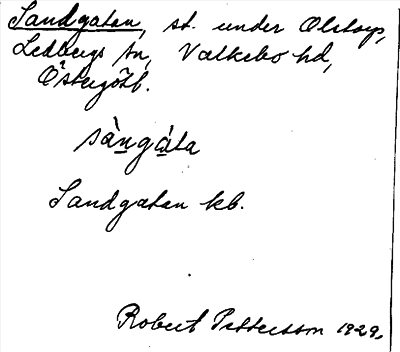 Sandgatan, st. under Olstorp,
Ledbergs sn, Valkebo hd,
Östergötl.
sàngáta
Sandgatan kb.
Robert Pettersson 1929.